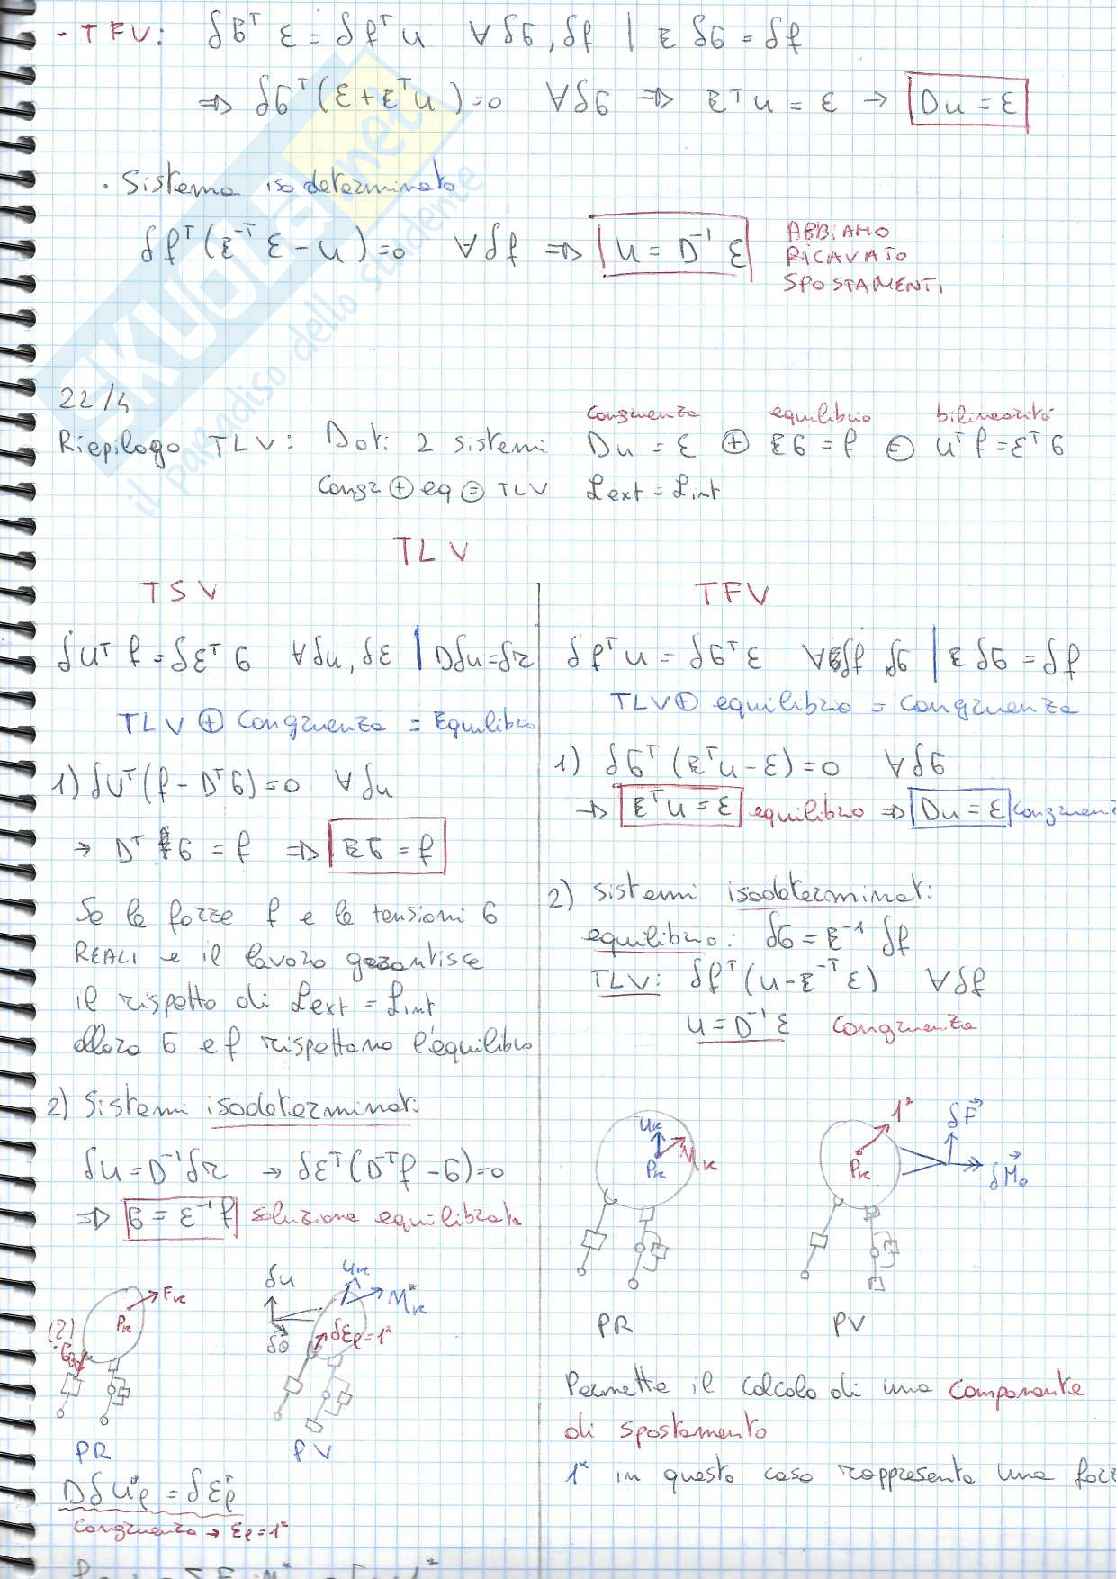 - TFV: δσᵀ ε = δfᵀ u ∀δσ, δf | Σ δσ = δf
⇒ δσᵀ(ε + Σᵀu) = 0 ∀δσ ⇒ Σᵀu = ε → Du = ε
· Sistema isodeterminato
δfᵀ(Σ⁻ᵀ ε - u) = 0 ∀δf ⇒ u = D⁻¹ ε
ABBIAMO
RICAVATO
SPOSTAMENTI
SKUOLA.net
il paradiso dello studente
22/4
congruenza equilibrio bilinearità
Riepilogo TLV: Dati 2 sistemi Du = ε ⊕ Σσ = f ⊜ uᵀf = εᵀσ
Congr ⊕ eq ⊜ TLV Lext = Lint
TLV
TSV
δuᵀ f = δεᵀ σ ∀δu, δε | Dδu = δε
TLV ⊕ congruenza = Equilibrio
1) δUᵀ(f - Dᵀσ) = 0 ∀δu
→ Dᵀ σ = f ⇒ Σσ = f
Se le forze f e le tensioni σ
REALI e il lavoro garantisce
il rispetto di Lext = Lint
allora σ e f rispettano l'equilibrio
2) Sistemi isodeterminati
δu = D⁻¹δε → δεᵀ(D⁻ᵀf - σ) = 0
⇒ σ = Σ⁻¹f soluzione equilibrata
Fk
Pk
(?)
PR
δu
δθ
uk
Mk*
δερ = 1*
PV
Dδu*ρ = δε*ρ
congruenza → ερ = 1*
TFV
δfᵀu = δσᵀε ∀δf δσ | Σ δσ = δf
TLV ⊕ equilibrio = congruenza
1) δσᵀ(Σᵀu - ε) = 0 ∀δσ
⇒ Σᵀu = ε equilibrio ⇒ Du = ε congruen
2) Sistemi isodeterminati:
equilibrio: δσ = Σ⁻¹ δf
TLV: δfᵀ(u - Σ⁻ᵀε) ∀δf
u = D⁻¹ε congruenza
uk
Pk
PR
1*
Pk
δF
δM₀
PV
Permette il calcolo di una componente
di spostamento
1* in questo caso rappresenta una forz